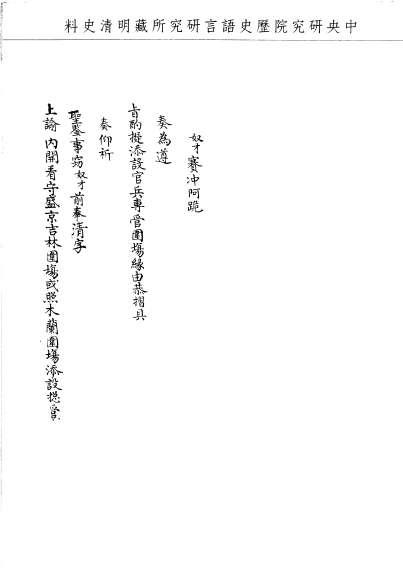 中央研究院歷史語言研究所藏明清史料
奴才賽冲阿跪
奏為遵
旨酌擬添設官兵專管圍塲緣由恭摺具
奏仰祈
聖鑒事窃奴才前奉清字
上諭內開看守盛京吉林圍塲或照木蘭圍塲添設揔管